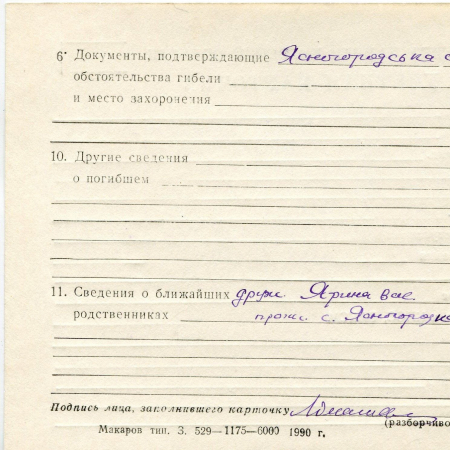 6· Документы, подтверждающие Ясногородська с
обстоятельства гибели
и место захоронения
10. Другие сведения
о погибшем
11. Сведения о ближайших друж. Ярина Вас.
родственниках прож. с. Ясногородка
Подпись лица, заполнившего карточку
(разборчиво
Макаров тип. З. 529—1175—6000 1990 г.